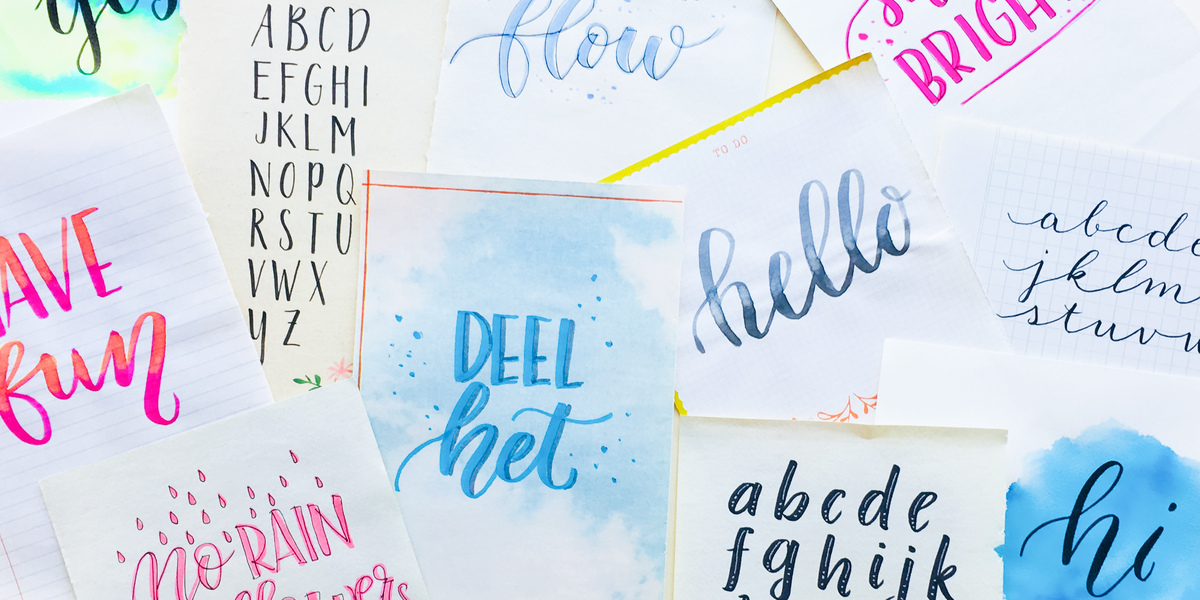 yes
A B C D
E F G H I
J K L M
N O P Q
R S T U
V W X
Y Z
flow
BRIGH
TO DO
hello
a b c d e
j k l m
s t u v
AVE
fun
DEEL
het
NO RAIN
flowers
a b c d e
f g h i j k
hi